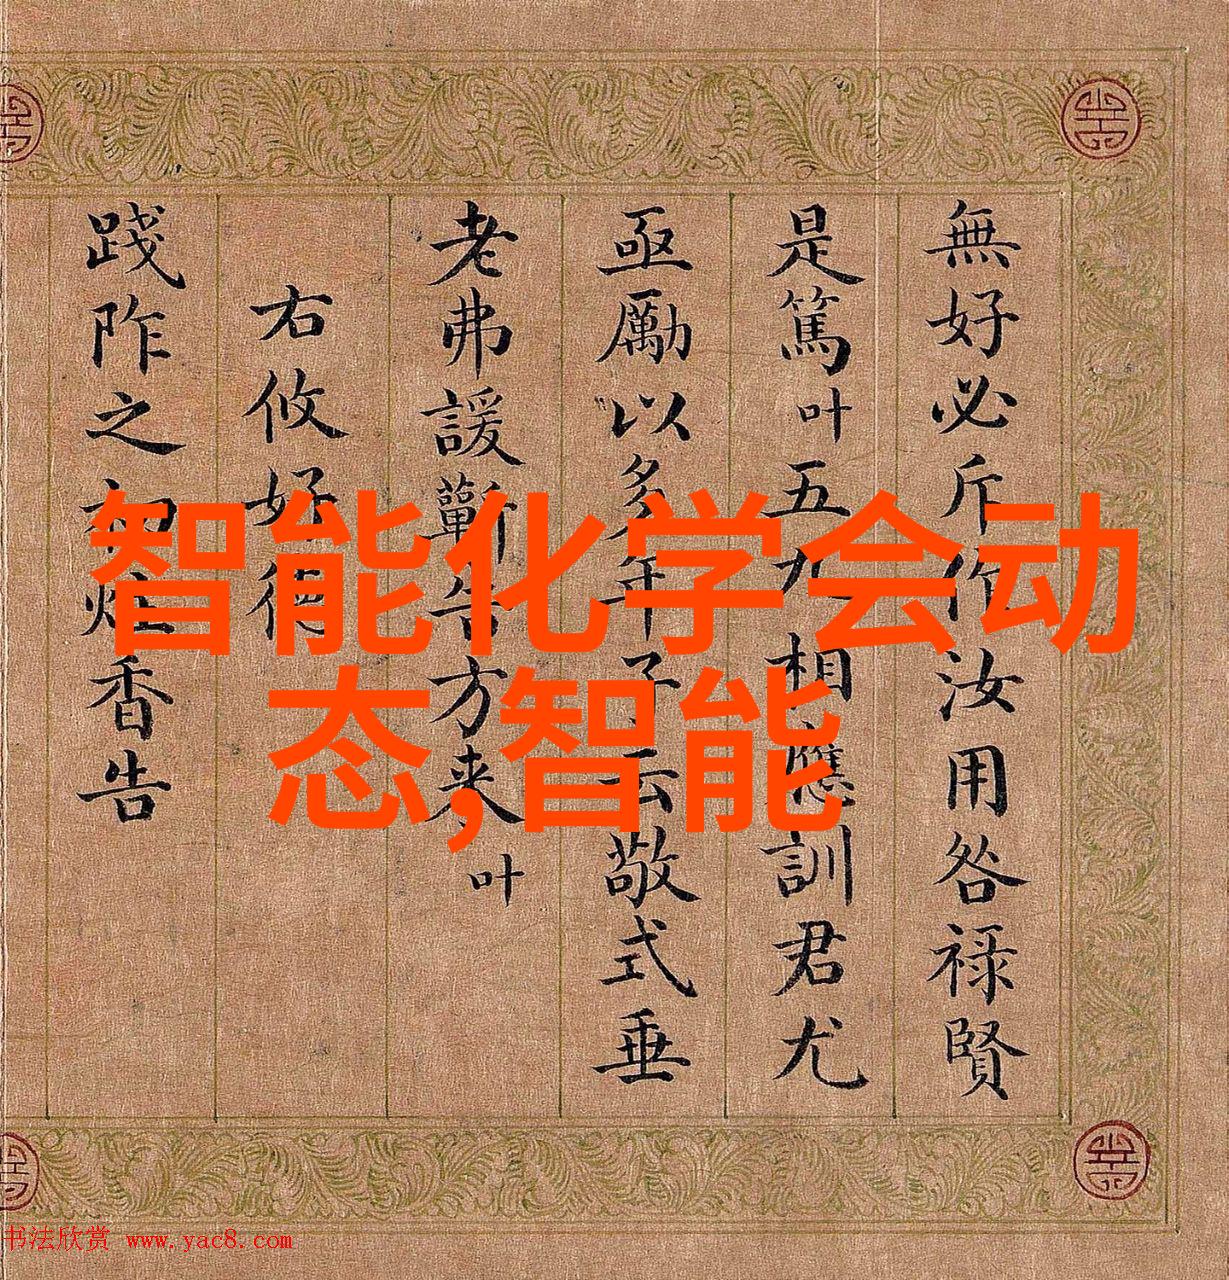 無好必斥作汝用咎祿賢
是篤叶五九相應訓君尤
亟勵以多年予云敬式垂
老弗諼蘄告方来叶
右攸好德
踐阼之初炷香告
智能化学会动
态,智能
书法欣赏 www.yac8.com